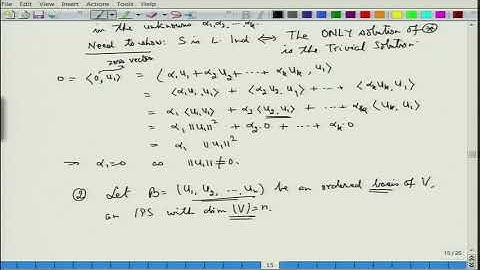 in the unknowns α₁, α₂, ... αₖ.
Need to show: S is L. Ind ⟷ The ONLY solution of ⊛
is the Trivial Solution.
zero vector
0 = ⟨0, u₁⟩ = ⟨α₁u₁ + α₂u₂ + ··· + αₖuₖ, u₁⟩
= ⟨α₁u₁, u₁⟩ + ⟨α₂u₂, u₁⟩ + ··· + ⟨αₖuₖ, u₁⟩
= α₁⟨u₁, u₁⟩ + α₂⟨u₂, u₁⟩ + ··· + αₖ⟨uₖ, u₁⟩
= α₁‖u₁‖² + α₂·0 + ··· + αₖ·0
= α₁ ‖u₁‖²
⇒ α₁=0 as ‖u₁‖≠0.
② Let B = (u₁, u₂, ..., uₙ) be an ordered basis of V,
an IPS with dim (V)=n.
15/25
15